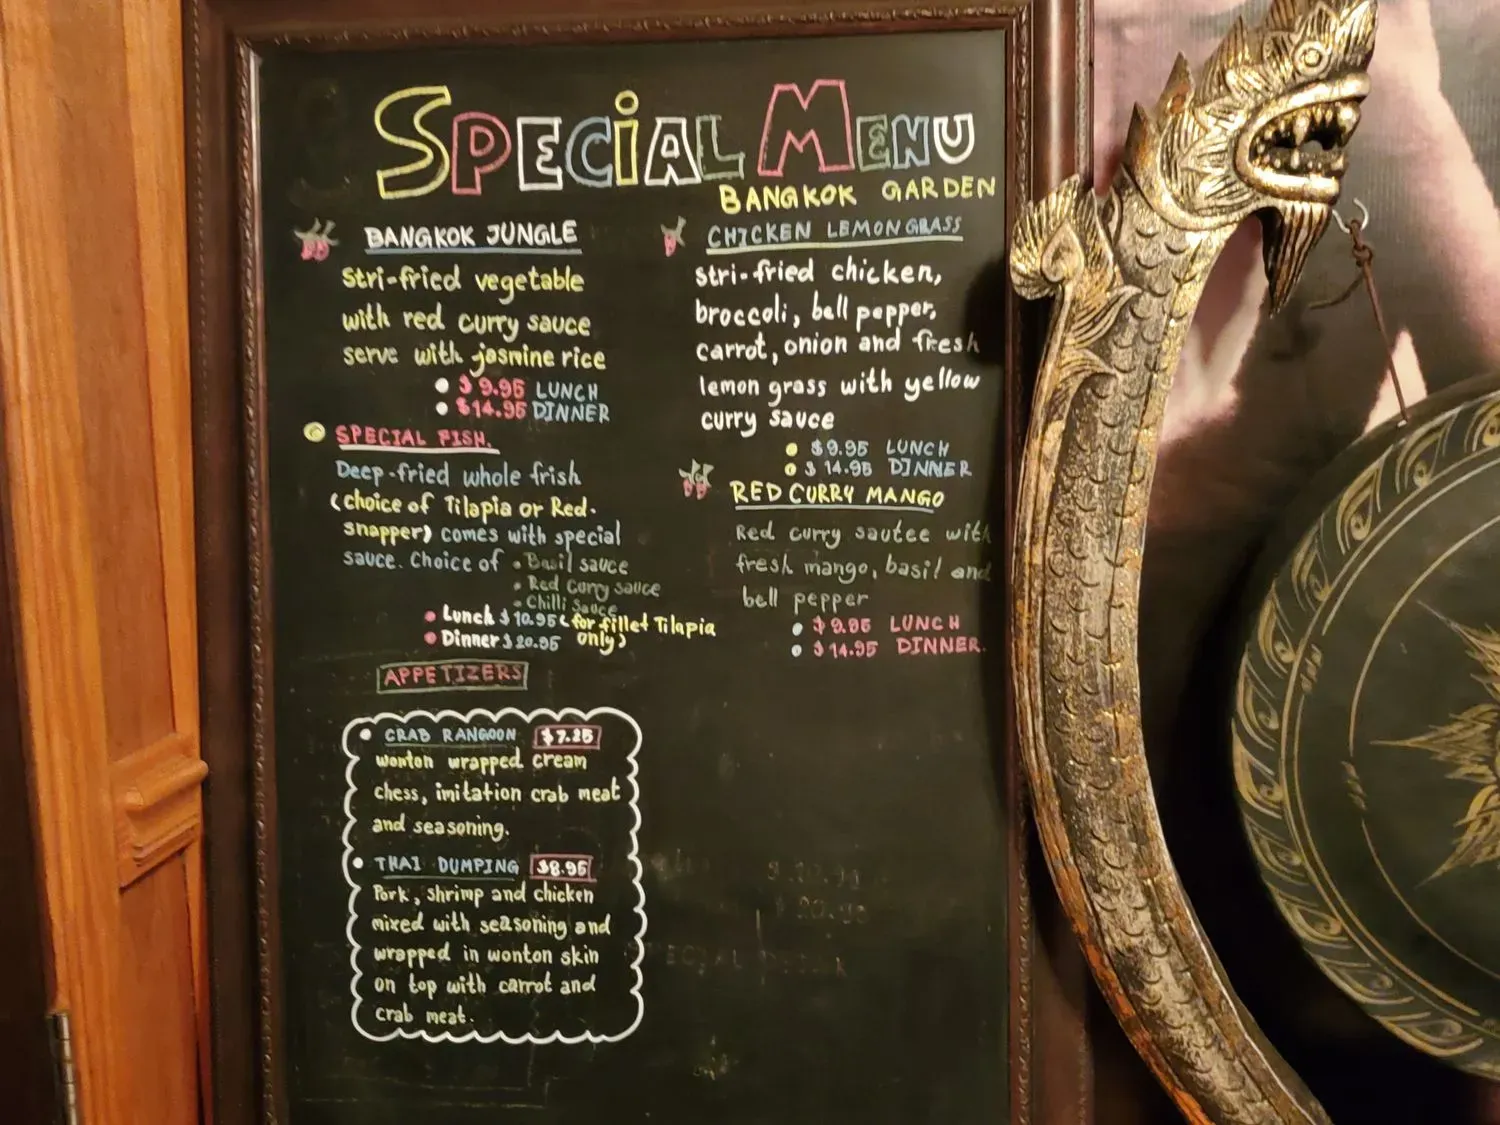 SPECiAL MENU
BANGKOK GARDEN
BANGKOK JUNGLE
Stri-fried vegetable
with red curry sauce
serve with jasmine rice
$9.95 LUNCH
$14.95 DINNER
SPECIAL FISH.
Deep-fried whole frish
(choice of Tilapia or Red-
snapper) comes with special
sauce. Choice of • Basil sauce
• Red Curry sauce
• Chilli Sauce
• Lunch $10.95 (for fillet Tilapia
• Dinner $20.95 only)
CHICKEN LEMONGRASS
stri-fried chicken,
broccoli, bell pepper,
carrot, onion and fresh
lemon grass with yellow
curry sauce
$9.95 LUNCH
$14.95 DINNER
RED CURRY MANGO
Red curry sautee with
fresh mango, basil and
bell pepper
$9.95 LUNCH
$14.95 DINNER.
APPETIZERS
• CRAB RANGOON $7.25
wonton wrapped cream
chess, imitation crab meat
and seasoning.
• THAI DUMPING $8.95
Pork, shrimp and chicken
mixed with seasoning and
wrapped in wonton skin
on top with carrot and
crab meat.